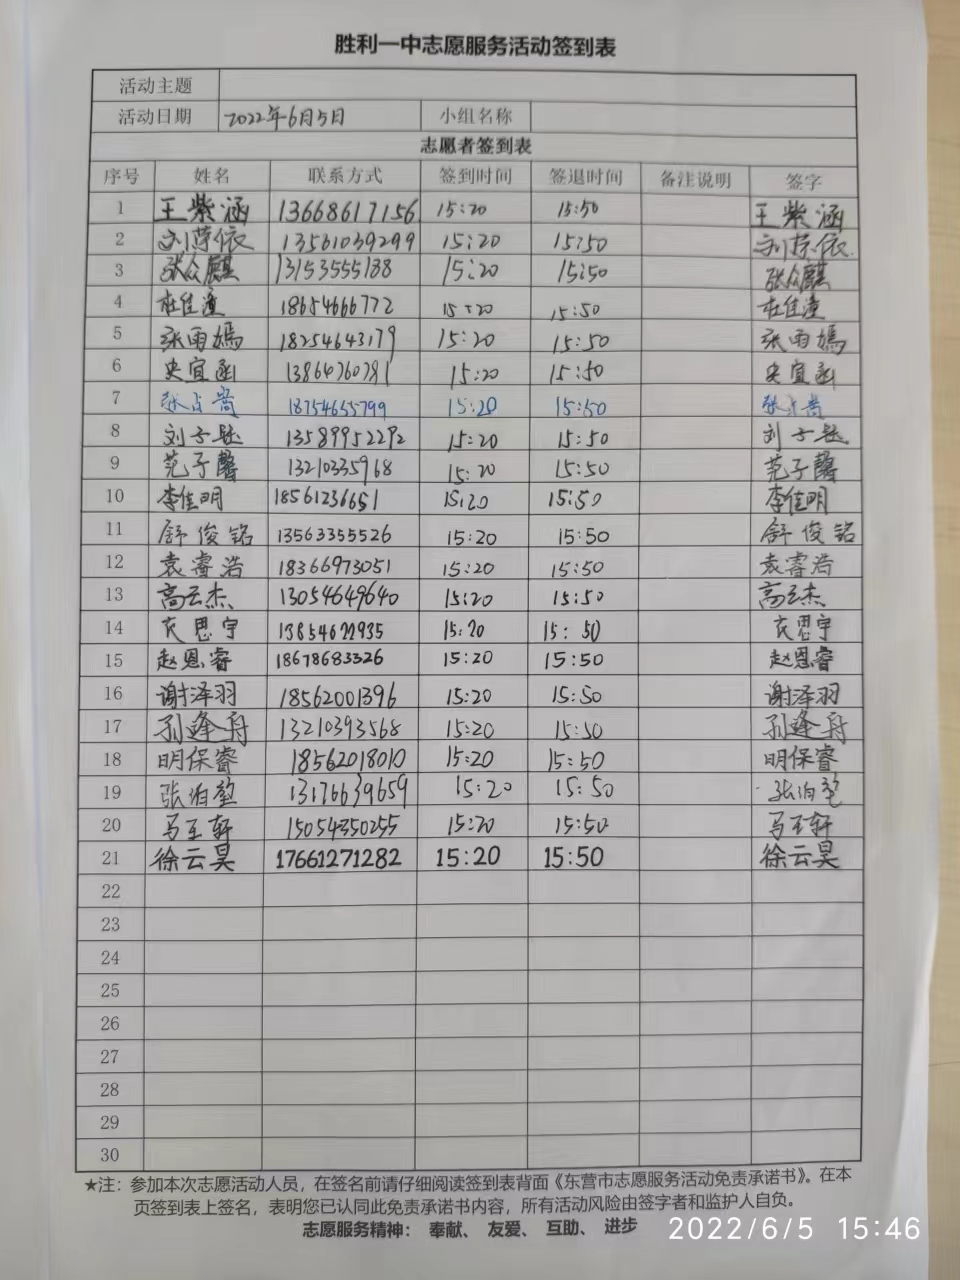 胜利一中志愿服务活动签到表
活动主题
活动日期 2022年6月5日 小组名称
志愿者签到表
序号 姓名 联系方式 签到时间 签退时间 备注说明 签字
1 王紫涵 13668617156 15:20 15:50 王紫涵
2 刘 依 13561039299 15:20 15:50 刘 依
3 张众麒 13153555188 15:20 15:50 张众麒
4 杜佳潼 18654666772 15:20 15:50 杜佳潼
5 张雨嫣 18254643179 15:20 15:50 张雨嫣
6 史宜函 13864760781 15:20 15:50 史宜函
7 张 18754655799 15:20 15:50 张
8 刘子 13589952292 15:20 15:50 刘子
9 范子馨 13210335968 15:20 15:50 范子馨
10 李佳明 18561236651 15:20 15:50 李佳明
11 舒俊铭 13563355526 15:20 15:50 舒俊铭
12 袁睿浩 18366973051 15:20 15:50 袁睿浩
13 高云杰 13054649640 15:20 15:50 高云杰
14 思宇 13854622935 15:20 15:50 思宇
15 赵恩睿 18678683326 15:20 15:50 赵恩睿
16 谢泽羽 18562001396 15:20 15:50 谢泽羽
17 孙逢舟 13210393568 15:20 15:50 孙逢舟
18 明保睿 18562018010 15:20 15:50 明保睿
19 张泊堃 13176639659 15:20 15:50 张泊堃
20 马玉轩 15054350255 15:20 15:50 马玉轩
21 徐云昊 17661271282 15:20 15:50 徐云昊
22
23
24
25
26
27
28
29
30
★注：参加本次志愿活动人员，在签名前请仔细阅读签到表背面《东营市志愿服务活动免责承诺书》。在本
页签到表上签名，表明您已认同此免责承诺书内容，所有活动风险由签字者和监护人自负。
志愿服务精神： 奉献、 友爱、 互助、 进步
2022/6/5 15:46